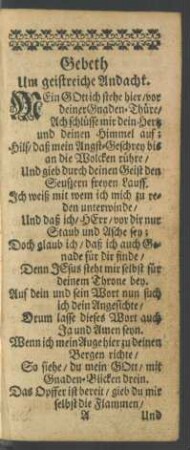 Gebeth
Um geistreiche Andacht.
MEin GOtt ich stehe hier/vor
deiner Gnaden-Thüre/
Ach schlüsse mir dein Hertz
und deinen Himmel auf:
Hilf/ daß mein Angst-Geschrey biß
an die Wolcken rühre/
Und gieb durch deinen Geist den
Seufzern freyen Lauff.
Ich weiß mit wem ich mich zu re-
den unterwinde/
Und daß ich/ HErr/ vor dir nur
Staub und Asche sey:
Doch glaub ich/ daß ich auch Ge-
nade für dir finde/
Denn JEsus steht mir selbst für
deinem Throne bey.
Auf dein und sein Wort nun such
ich dein Angesichte/
Drum lasse dieses Wort auch
Ja und Amen seyn.
Wenn ich mein Auge hier zu deinen
Bergen richte/
So siehe/ du mein GOtt/ mit
Gnaden-Blicken drein.
Das Opffer ist bereit/ gieb du mir
selbst die Flammen/
A Und